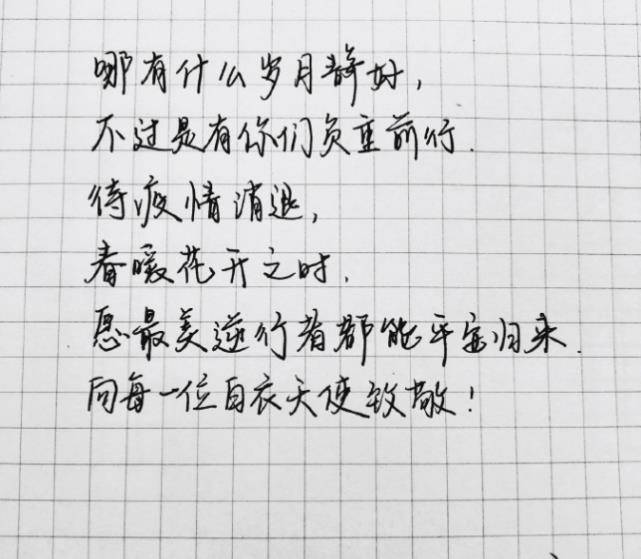 哪有什么岁月静好，
不过是有你们负重前行.
待疫情消退，
春暖花开之时.
愿最美逆行者都能平安归来.
向每一位白衣天使致敬！